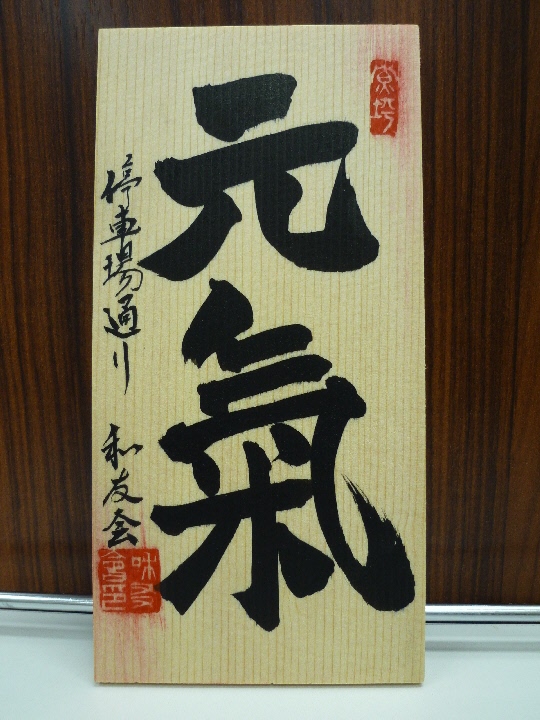 元氣
停車場通り 和友会